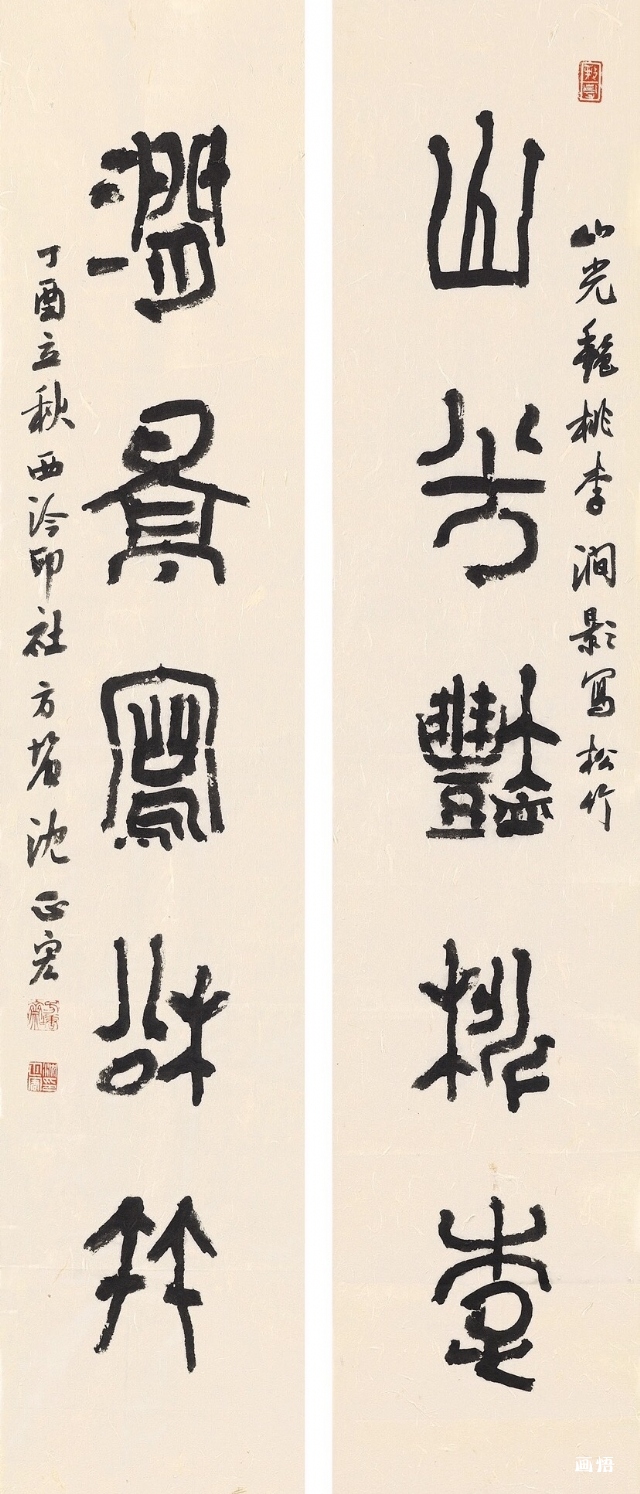 山光豔桃李
山光豔桃李澗影寫松竹
澗景寫松竹
丁酉立秋西泠印社方岩沈正宏
画悟